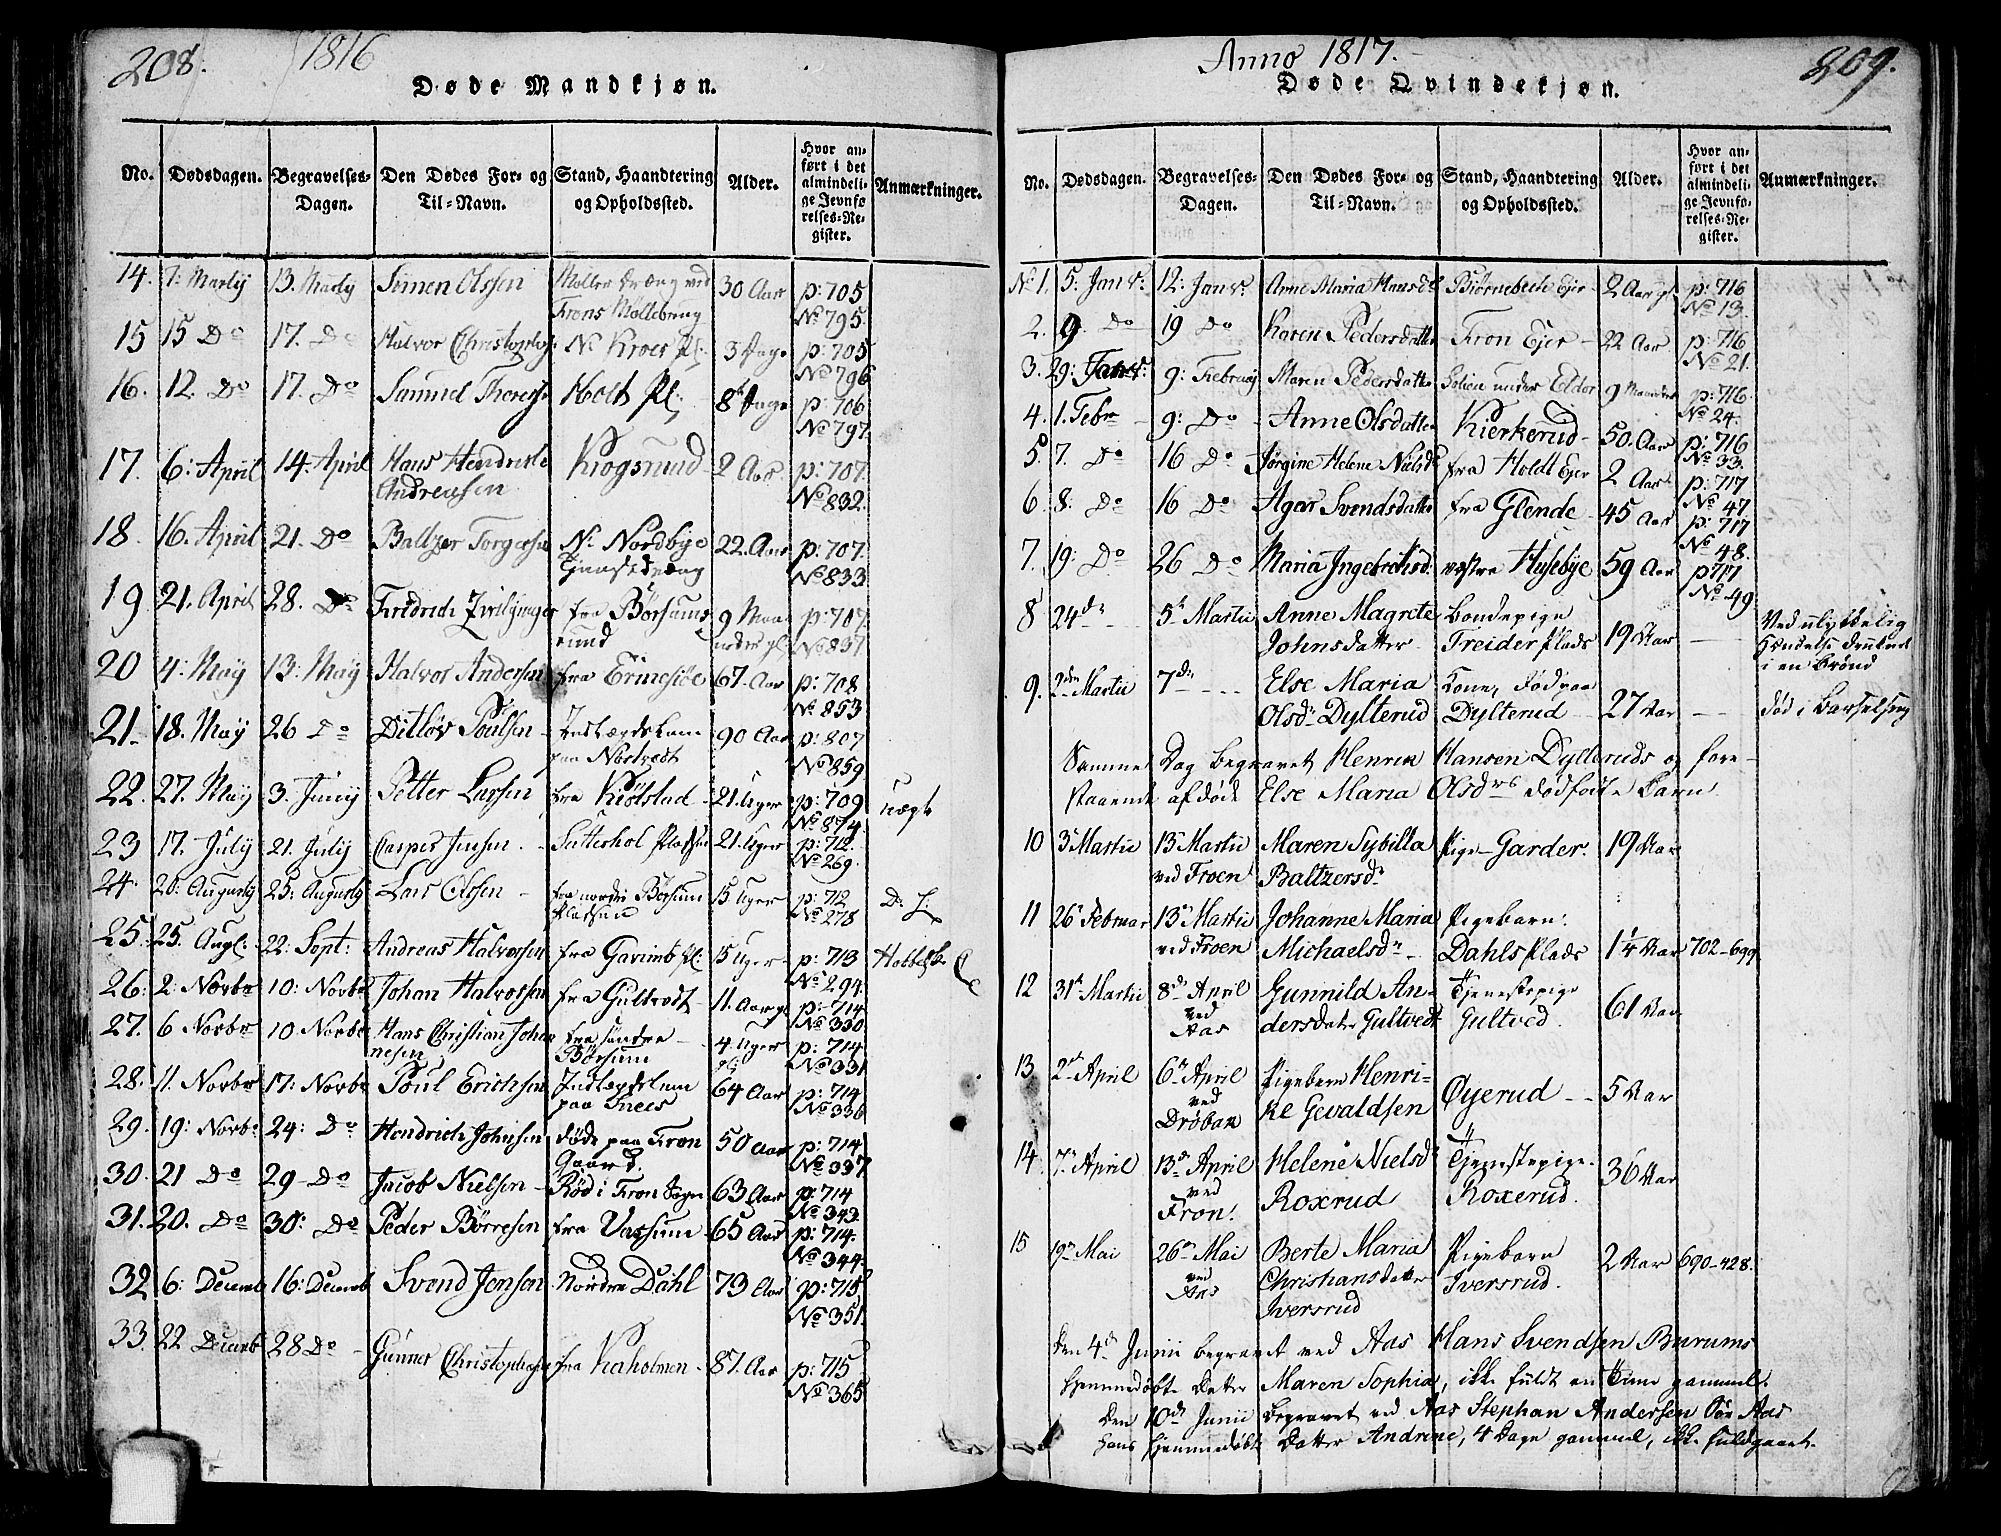 208.
1816
Døde Mandkjøn.
No. Dødsdagen. Begravelses-Dagen. Den Dødes For- og Til-Navn. Stand, Haandtering og Opholdssted. Alder. Hvor anført i det almindelige Jevnførelses-Register. Anmærkninger.
14. 7: Martij 13. Martij Simen Olssen Møller dræng ved 30 Aar p: 705
Frons Møllebrug No 795.
15 15 Do 17. Do Halvor Christophs No Kroer Pl: 3 Dage p: 705
No 796
16. 12. Do 17. Do Samuel Holt Pl: 8 Dage p: 706
No 797.
17. 6: April 14. April Hans Hendrich Krogsrud 2 Aar p: 707.
Andreasen No 832.
18. 16. April 21. Do Baltzer Torgersen N. Nordbye 22. Aar p: 707.
Tjenestedreng No 833.
19 21. April 28. Do Fridrich fra Børsums 9 Maa p: 707.
rud neder gl: No 837
20 4: May 13: May Halvor Andersen fra Ermesiøe 67. Aar p: 708
No 853
21. 18. May 26 Do Ditløv Poulsen Indlægdslem 90 Aar p: 807
paa Nordvedt No 859
22. 27. May 3. Junij Petter Larsen fra Kiølstad 21. Uger p: 709 uægte
No 874.
23 17. July 21. July Casper Jensen Sætterhol Pladsen 21. Uger p: 712.
No 269.
24. 20: Augusty 25: Augusty Lars Olssen fra nordre Børsum 15 Uger p: 712 D: L:
Pladsen No 278
25. 25. Augl: 22: Sept: Andreas Halvorsen fra Garimb Pl: 15 Uger p: 713
No 294.
26. 2: Novbr 10: Novbr Johan Halvorsen fra Gultvedt 11. Aar gl p: 714
No 330.
27. 6 Novbr 10 Novbr Hans Christian Johan fra søndre 4. Uger p: 714
nesen Børsum gl: No 331
28. 11. Novbr 17: Novbr Poul Erichsen Indlægdslem 64 Aar p: 714
paa Snees No 336
29. 19: Novbr 24: Do Hendrich Johnsen døde paa Fron 50 Aar p: 714
Gaard. No 337
30. 21 Do 29 Do Jacob Nielsen Rød i Fron Sogn 63 Aar p: 714
No 343.
31. 20. Do 30: Do Peder Børresen fra Vassum 65 Aar p: 714.
No 344.
32 6: Decemb 16: Decemb Svend Jensen Nordre Dahl 73 Aar p: 715
No 351.
33. 22 Decemb 28 Do Gunner Christophersen fra Kaholmen 87. Aar p: 715
No 365
Anno 1817.
209.
Døde Qvindekjøn.
No. Dødsdagen. Begravelses-Dagen. Den Dødes For- og Til-Navn. Stand, Haandtering og Opholdssted. Alder. Hvor anført i det almindelige Jevnførelses-Register. Anmærkninger.
No 1. 5: Janv: 12: Janv: Anne Maria Hansd Biørnebech Ejer 2 Aar gl p: 716
No 13.
2. 9. Do 19 Do Karen Pedersdatter Fron Ejer 22 Aar p: 716
No 21.
3. 29: Janv: 9: Februaj Maren Pedersdatter under Eldor 9 Maaneder p: 716
No 24.
4. 1. Febr 9: Do Anne Olsdatter Kierkerud 50. Aar p: 716
No 33.
5. 7. Do 16 Do Jørgine Helene Nielsd: fra Holdt Ejer 2 Aar p: 717
No 47
6. 8. Do 16 Do Agar Svendsdatter fra Glende 45 Aar p: 717
No 48.
7. 19: Do 26 Do Maria Ingebrichsd. vestre Husebye 59 Aar p 717
No 49
8 24de 5t Martii Anne Magrete Bondepige 19 Aar Ved ulykkelig
Johnsdatter Freider Plads Hændelse druknet
i en Brønd
9. 2den Martii 7de Else Maria Kone, Fød paa 27 Aar død i Barselseng
Olsdr Dylterud Dylterud
Samme Dag begravet Henrik Hansen Dylteruds og fore-
staaende afdøde Else Maria Olsdrs dødfødte Barn
10 3 Martii 13 Martii Maren Sybilla Pige Garder. 19 Aar
ved Froen Baltzersdr
11 26 Februar 13 Martii Johanne Maria Pigebarn.
ved Froen Michaelsdr Dahls Plads 1¼ Aar 702-699.
12 31t Martii 8de April Gunnild An- Tjenestepige 61 Aar
ved Aas dersdatr Gultvedt Gultved.
13 2d April 6te April Pigebarn Henri- Øyerud 5 Aar
ved Drøbak ke Gevaldsen
14. 7de April 13de April Helene Nielsdr Tjenestepige 36 Aar
ved Fron. Roxrud Roxerud.
15 19de Mai 26de Mai Berte Maria Pigebarn 2 Aar 690-428.
ved Aas Christiansdatter Iversrud.
Iversrud
Den 4de Junii begravet ved Aas Hans Svendsen Burums
hjemmedøbte Datter Maren Sophia, ikke fuldt en Time gammel.
Den 10de Junii begravet ved Aas Stephan Andersen Sør Aas
hans hjemmedøbte Datter Andrine, 4 Dage gammel, ikke fuldgaaet.